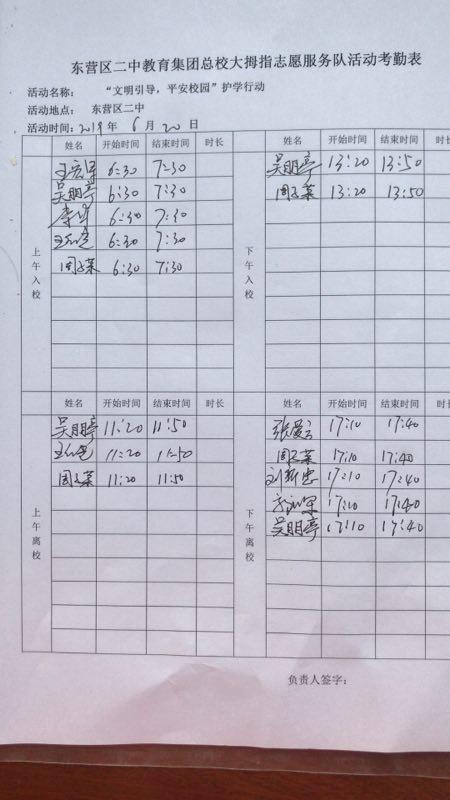 东营区二中教育集团总校大拇指志愿服务队活动考勤表
活动名称： “文明引导，平安校园”护学行动
活动地点： 东营区二中
活动时间：2019 年 6 月 20 日
姓名 开始时间 结束时间 时长
上午入校
王宏军 6:30 7:30
吴明亭 6:30 7:30
6:30 7:30
6:30 7:30
周子英 6:30 7:30
姓名 开始时间 结束时间
下午入校
吴明亭 13:20 13:50
周子英 13:20 13:50
姓名 开始时间 结束时间 时长
上午离校
吴明亭 11:20 11:50
11:20 11:50
周子英 11:20 11:50
姓名 开始时间 结束时间
下午离校
17:10 17:40
周子英 17:10 17:40
刘新忠 17:10 17:40
17:10 17:40
吴明亭 17:10 17:40
负责人签字：